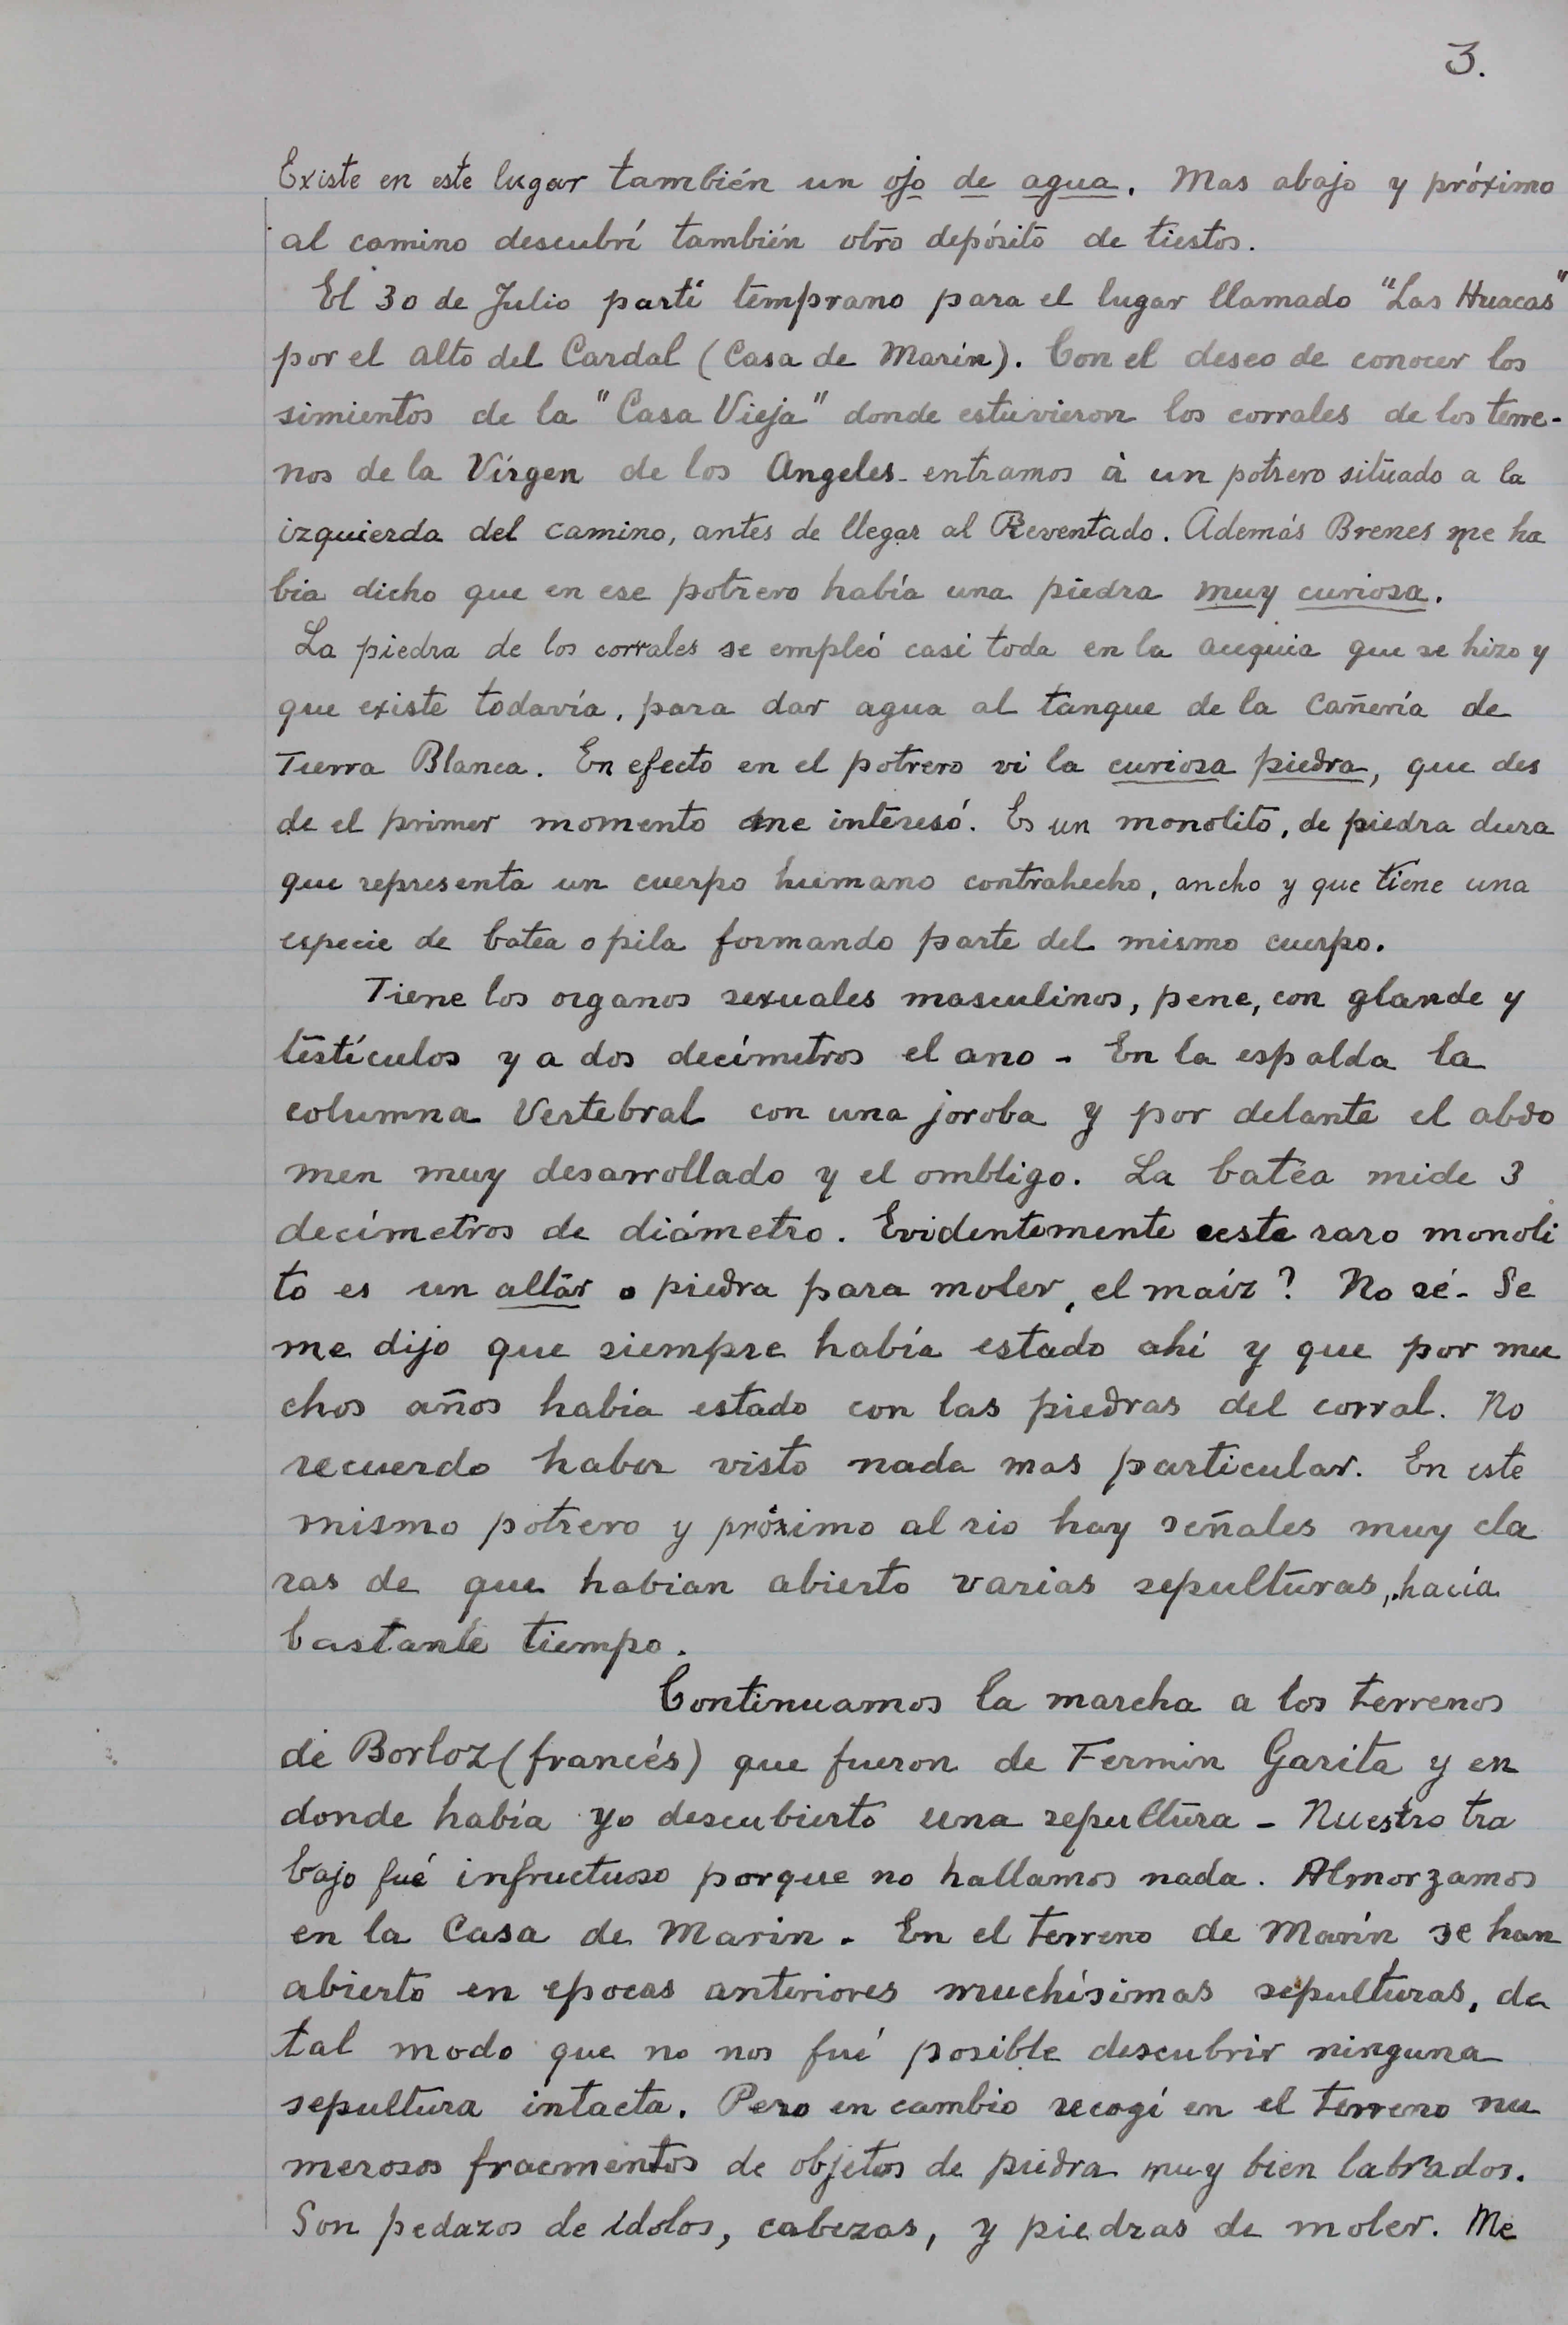 3.
Existe en este lugar también un ojo de agua. Mas abajo y próximo
al camino descubrí también otro depósito de tiestos.
El 30 de Julio partí temprano para el lugar llamado "Las Huacas"
por el alto del Cardal (Casa de Marín). Con el deseo de conocer los
simientos de la "Casa Vieja" donde estuvieron los corrales de los terre-
nos de la Virgen de los Angeles - entramos à un potrero situado a la
izquierda del camino, antes de llegar al Reventado. Además Brenes me ha
bia dicho que en ese potrero había una piedra muy curiosa.
La piedra de los corrales se empleó casi toda en la acequia que se hizo y
que existe todavía, para dar agua al tanque de la Cañería de
Tierra Blanca. En efecto en el potrero vi la curiosa piedra, que des
de el primer momento me interesó. Es un monolito, de piedra dura
que representa un cuerpo humano contrahecho, ancho y que tiene una
especie de batea o pila formando parte del mismo cuerpo.
Tiene los organos sexuales masculinos, pene, con glande y
testículos y a dos decímetros el ano - En la espalda la
columna Vertebral con una joroba y por delante el abdo
men muy desarrollado y el ombligo. La batea mide 3
decímetros de diámetro. Evidentemente este raro monoli
to es un altar o piedra para moler, el maíz? No sé - Se
me dijo que siempre había estado ahí y que por mu
chos años había estado con las piedras del corral. No
recuerdo haber visto nada mas particular. En este
mismo potrero y próximo al rio hay señales muy cla
ras de que habian abierto varias sepulturas, hacía
bastante tiempo.
Continuamos la marcha a los terrenos
de Borloz (francés) que fueron de Fermin Garita y en
donde había yo descubierto una sepultura - Nuestro tra
bajo fué infructuoso porque no hallamos nada. Almorzamos
en la Casa de Marin. En el terreno de Marín se han
abierto en epocas anteriores muchísimas sepulturas, de
tal modo que no nos fué posible descubrir ninguna
sepultura intacta. Pero en cambio recogí en el terreno nu
merosos fracmentos de objetos de piedra muy bien labrados.
Son pedazos de idolos, cabezas, y piedras de moler. Me